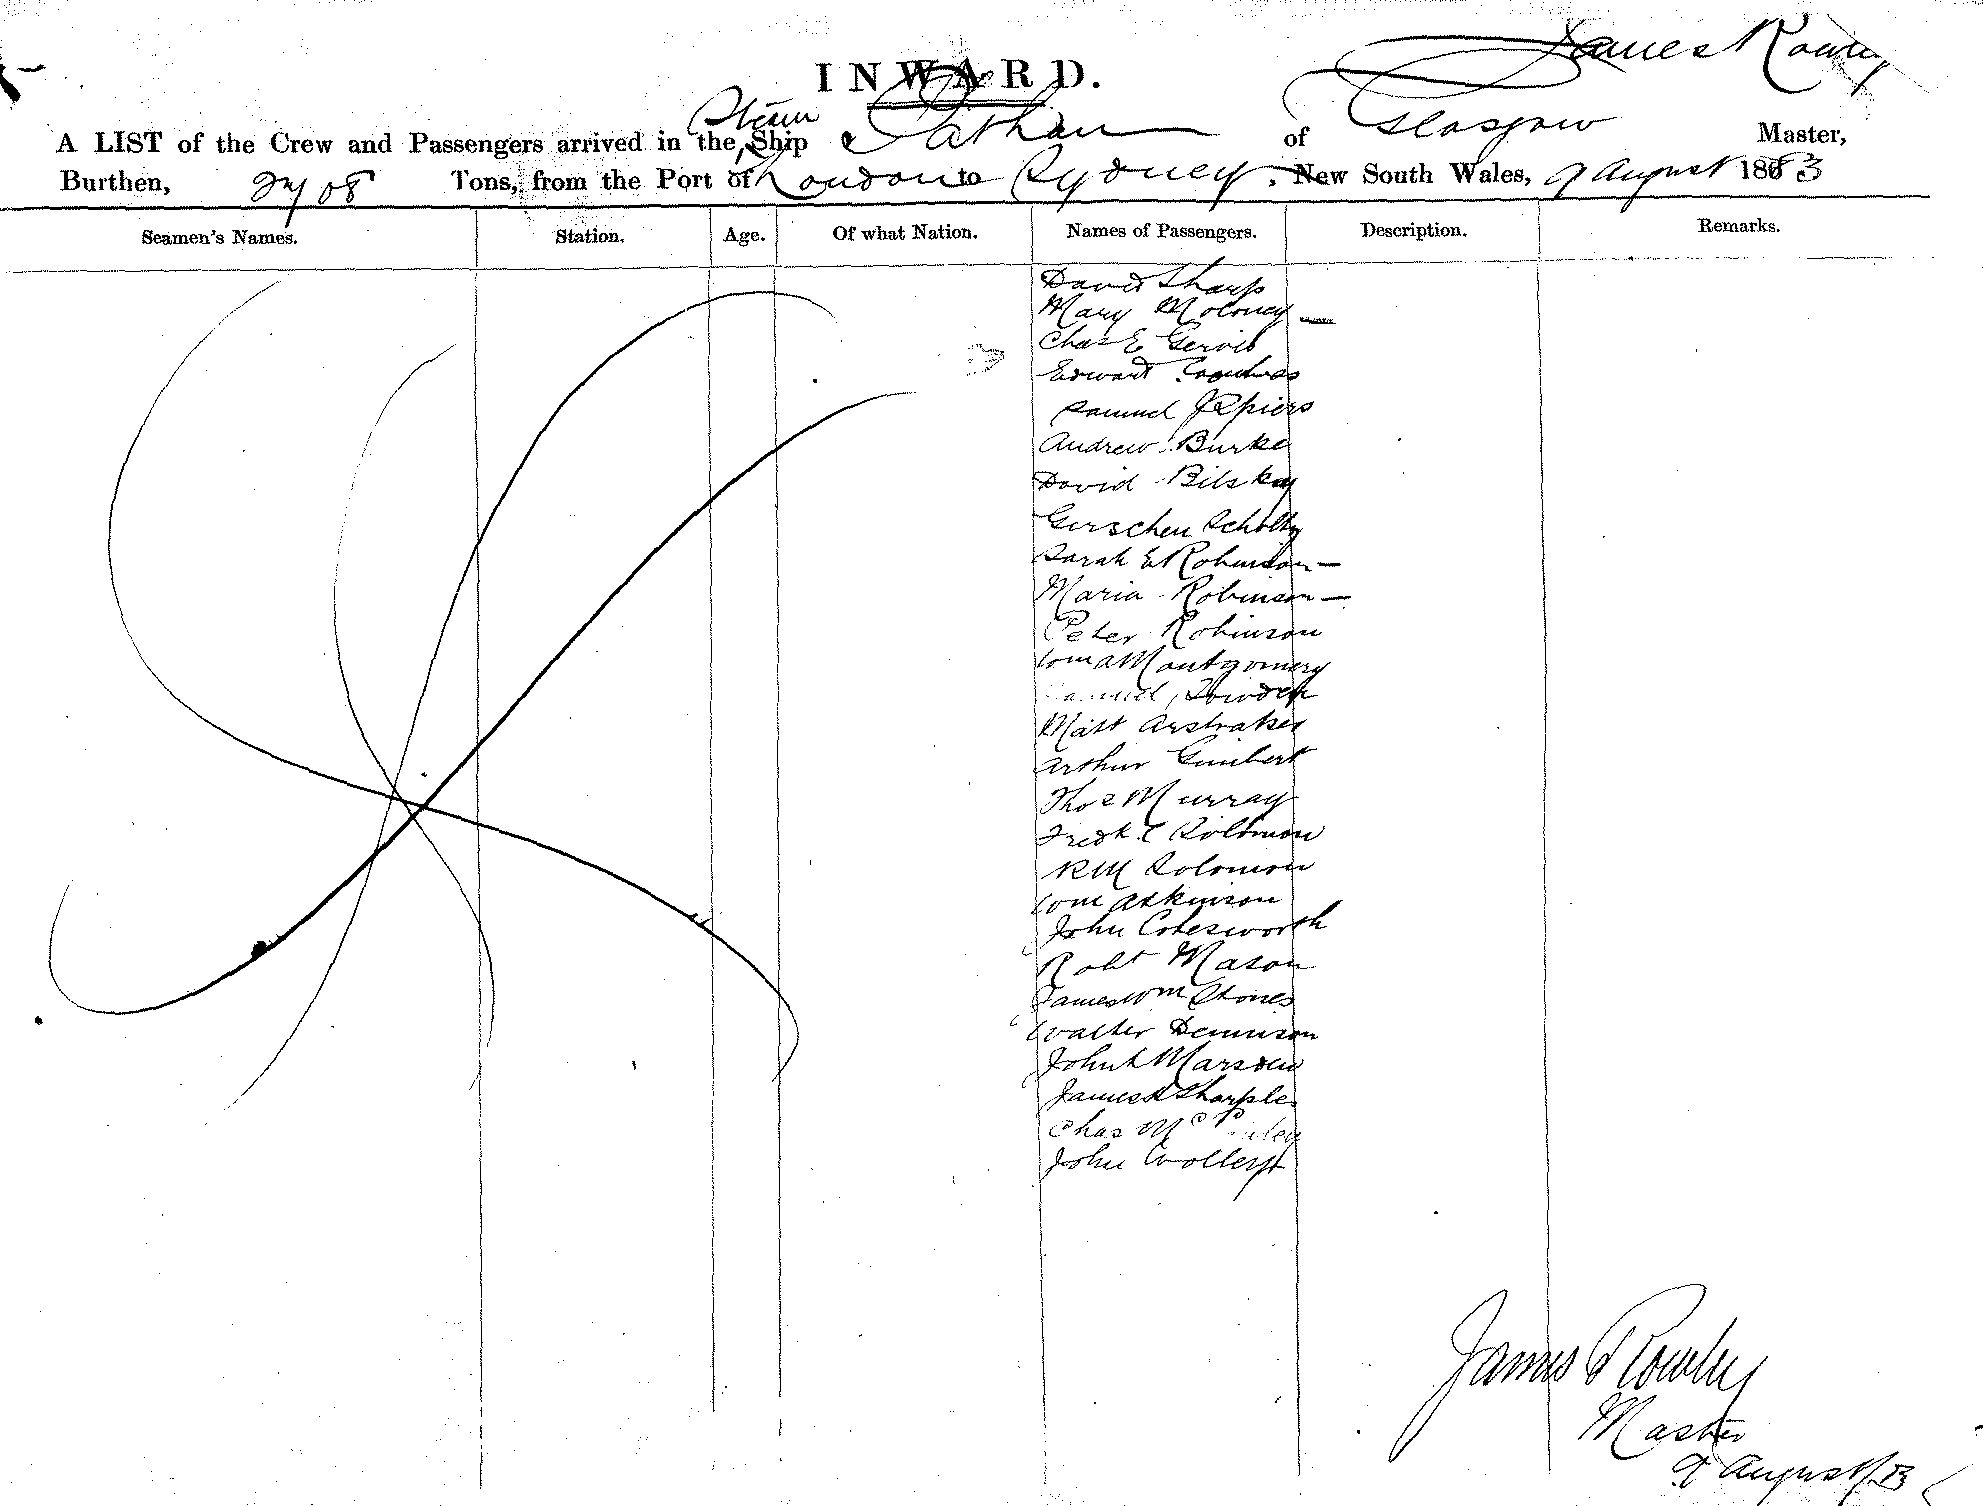 James Rowley
INWARD.
A LIST of the Crew and Passengers arrived in the Steam Ship Pathan of Glasgow Master,
Burthen, 2708 Tons, from the Port of London to Sydney, New South Wales, 9 August 1883
Seamen's Names. Station. Age. Of what Nation. Names of Passengers. Description. Remarks.
David Sharp
Mary Moloney —
Chas E Gervis
Edward
Samuel J Spiers
Andrew Burke
David Bilskey
Gerschen Scholtz
Sarah E Robinson —
Maria Robinson —
Peter Robinson
Wm A Montgomery
Samuel Sowden
Matt
Arthur Gimbert
Thos Murray
Fredk C Solomon
R M Solomon
Wm Atkinson
John Cotesworth
Robt Mason
James Wm Stones
Walter Dennison
John L Marsden
James A Sharples
Chas Mc
John
James Rowley
Master
9 August/83